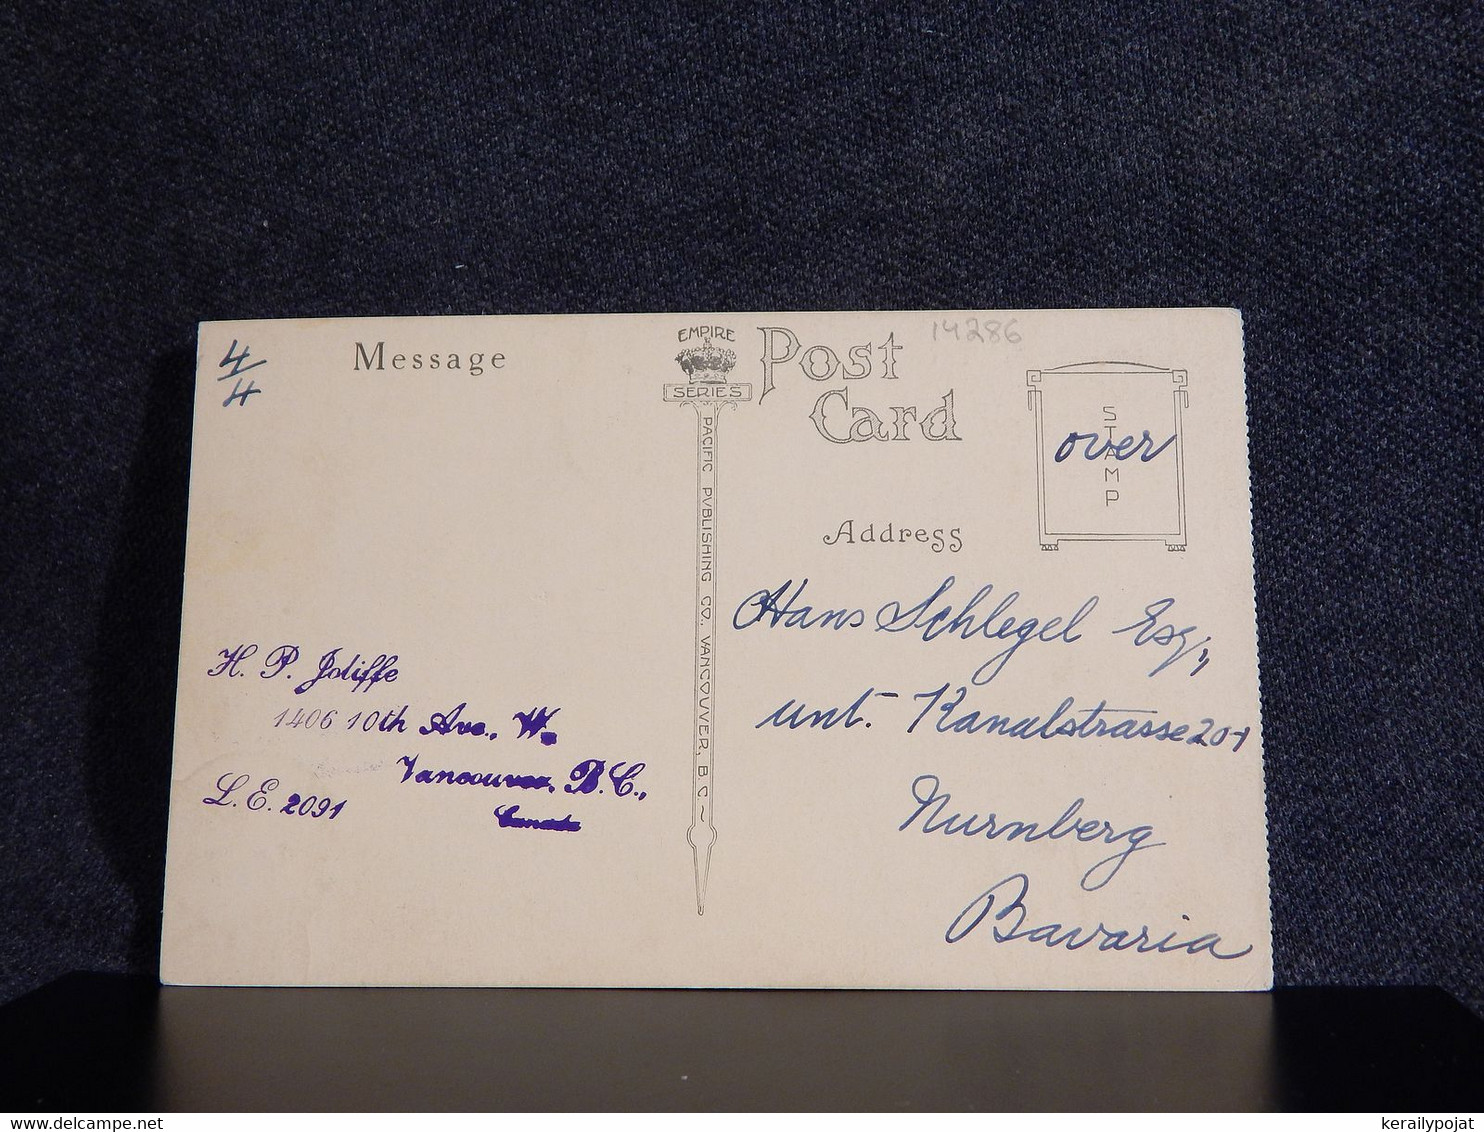 4/4
Message
EMPIRE
SERIES
PACIFIC PVBLISHING CO., VANCOUVER, B.C~
Post
Card
14286
STAMP
over
Address
Hans Schlegel Esq.,
unt. Kanalstrasse 20-1
Nurnberg
Bavaria
H. P. Joliffe
1406 10th Ave., W.
Vancouver, B.C.,
Canada
L.E. 2091
© delcampe.net
kerailypojat